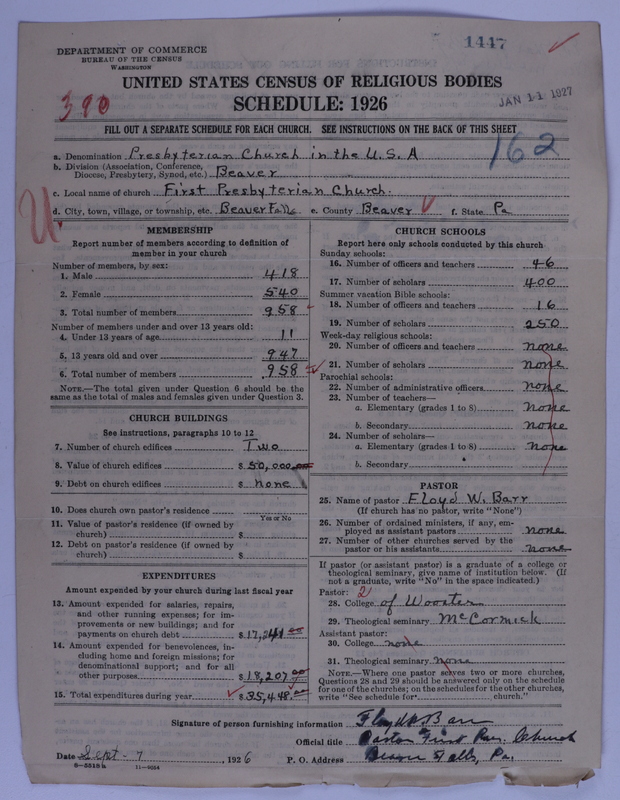 1447
DEPARTMENT OF COMMERCE
BUREAU OF THE CENSUS
WASHINGTON
UNITED STATES CENSUS OF RELIGIOUS BODIES
390
SCHEDULE: 1926
JAN 11 1927
FILL OUT A SEPARATE SCHEDULE FOR EACH CHURCH. SEE INSTRUCTIONS ON THE BACK OF THIS SHEET
162
a. Denomination Presbyterian Church in the U.S.A
b. Division (Association, Conference, Diocese, Presbytery, Synod, etc.) Beaver
c. Local name of church First Presbyterian Church.
d. City, town, village, or township, etc. Beaver Falls e. County Beaver f. State Pa
U
MEMBERSHIP
Report number of members according to definition of
member in your church
Number of members, by sex:
1. Male 418
2. Female 540
3. Total number of members 958
Number of members under and over 13 years old:
4. Under 13 years of age 11
5. 13 years old and over 947
6. Total number of members 958
NOTE.—The total given under Question 6 should be the
same as the total of males and females given under Question 3.
CHURCH BUILDINGS
See instructions, paragraphs 10 to 12
7. Number of church edifices Two
8. Value of church edifices $ 50,000.00
9. Debt on church edifices $ none
10. Does church own pastor's residence
Yes or No
11. Value of pastor's residence (if owned by
church) $
12. Debt on pastor's residence (if owned by
church) $
EXPENDITURES
Amount expended by your church during last fiscal year
13. Amount expended for salaries, repairs,
and other running expenses; for im-
provements or new buildings; and for
payments on church debt $ 17,241.00
14. Amount expended for benevolences, in-
cluding home and foreign missions; for
denominational support; and for all
other purposes $ 18,207.00
15. Total expenditures during year $ 35,448.00
CHURCH SCHOOLS
Report here only schools conducted by this church
Sunday schools:
16. Number of officers and teachers 46
17. Number of scholars 400
Summer vacation Bible schools:
18. Number of officers and teachers 16
19. Number of scholars 250
Week-day religious schools:
20. Number of officers and teachers none
21. Number of scholars none
Parochial schools:
22. Number of administrative officers none
23. Number of teachers—
a. Elementary (grades 1 to 8) none
b. Secondary none
24. Number of scholars—
a. Elementary (grades 1 to 8) none
b. Secondary
PASTOR
25. Name of pastor Floyd W. Barr
(If church has no pastor, write "None")
26. Number of ordained ministers, if any, em-
ployed as assistant pastors none
27. Number of other churches served by the
pastor or his assistants none
If pastor (or assistant pastor) is a graduate of a college or
theological seminary, give name of institution below. (If
not a graduate, write "No" in the space indicated.)
Pastor: 2
28. College of Wooster
29. Theological seminary McCormick
Assistant pastor:
30. College none
31. Theological seminary none
NOTE.—Where one pastor serves two or more churches,
Questions 28 and 29 should be answered only on the schedule
for one of the churches; on the schedules for the other churches,
write "See schedule for church."
Signature of person furnishing information Floyd W Barr
Official title Pastor First Pres. Church
Date Sept - 7, 1926 P. O. Address Beaver Falls, Pa.
11—9064